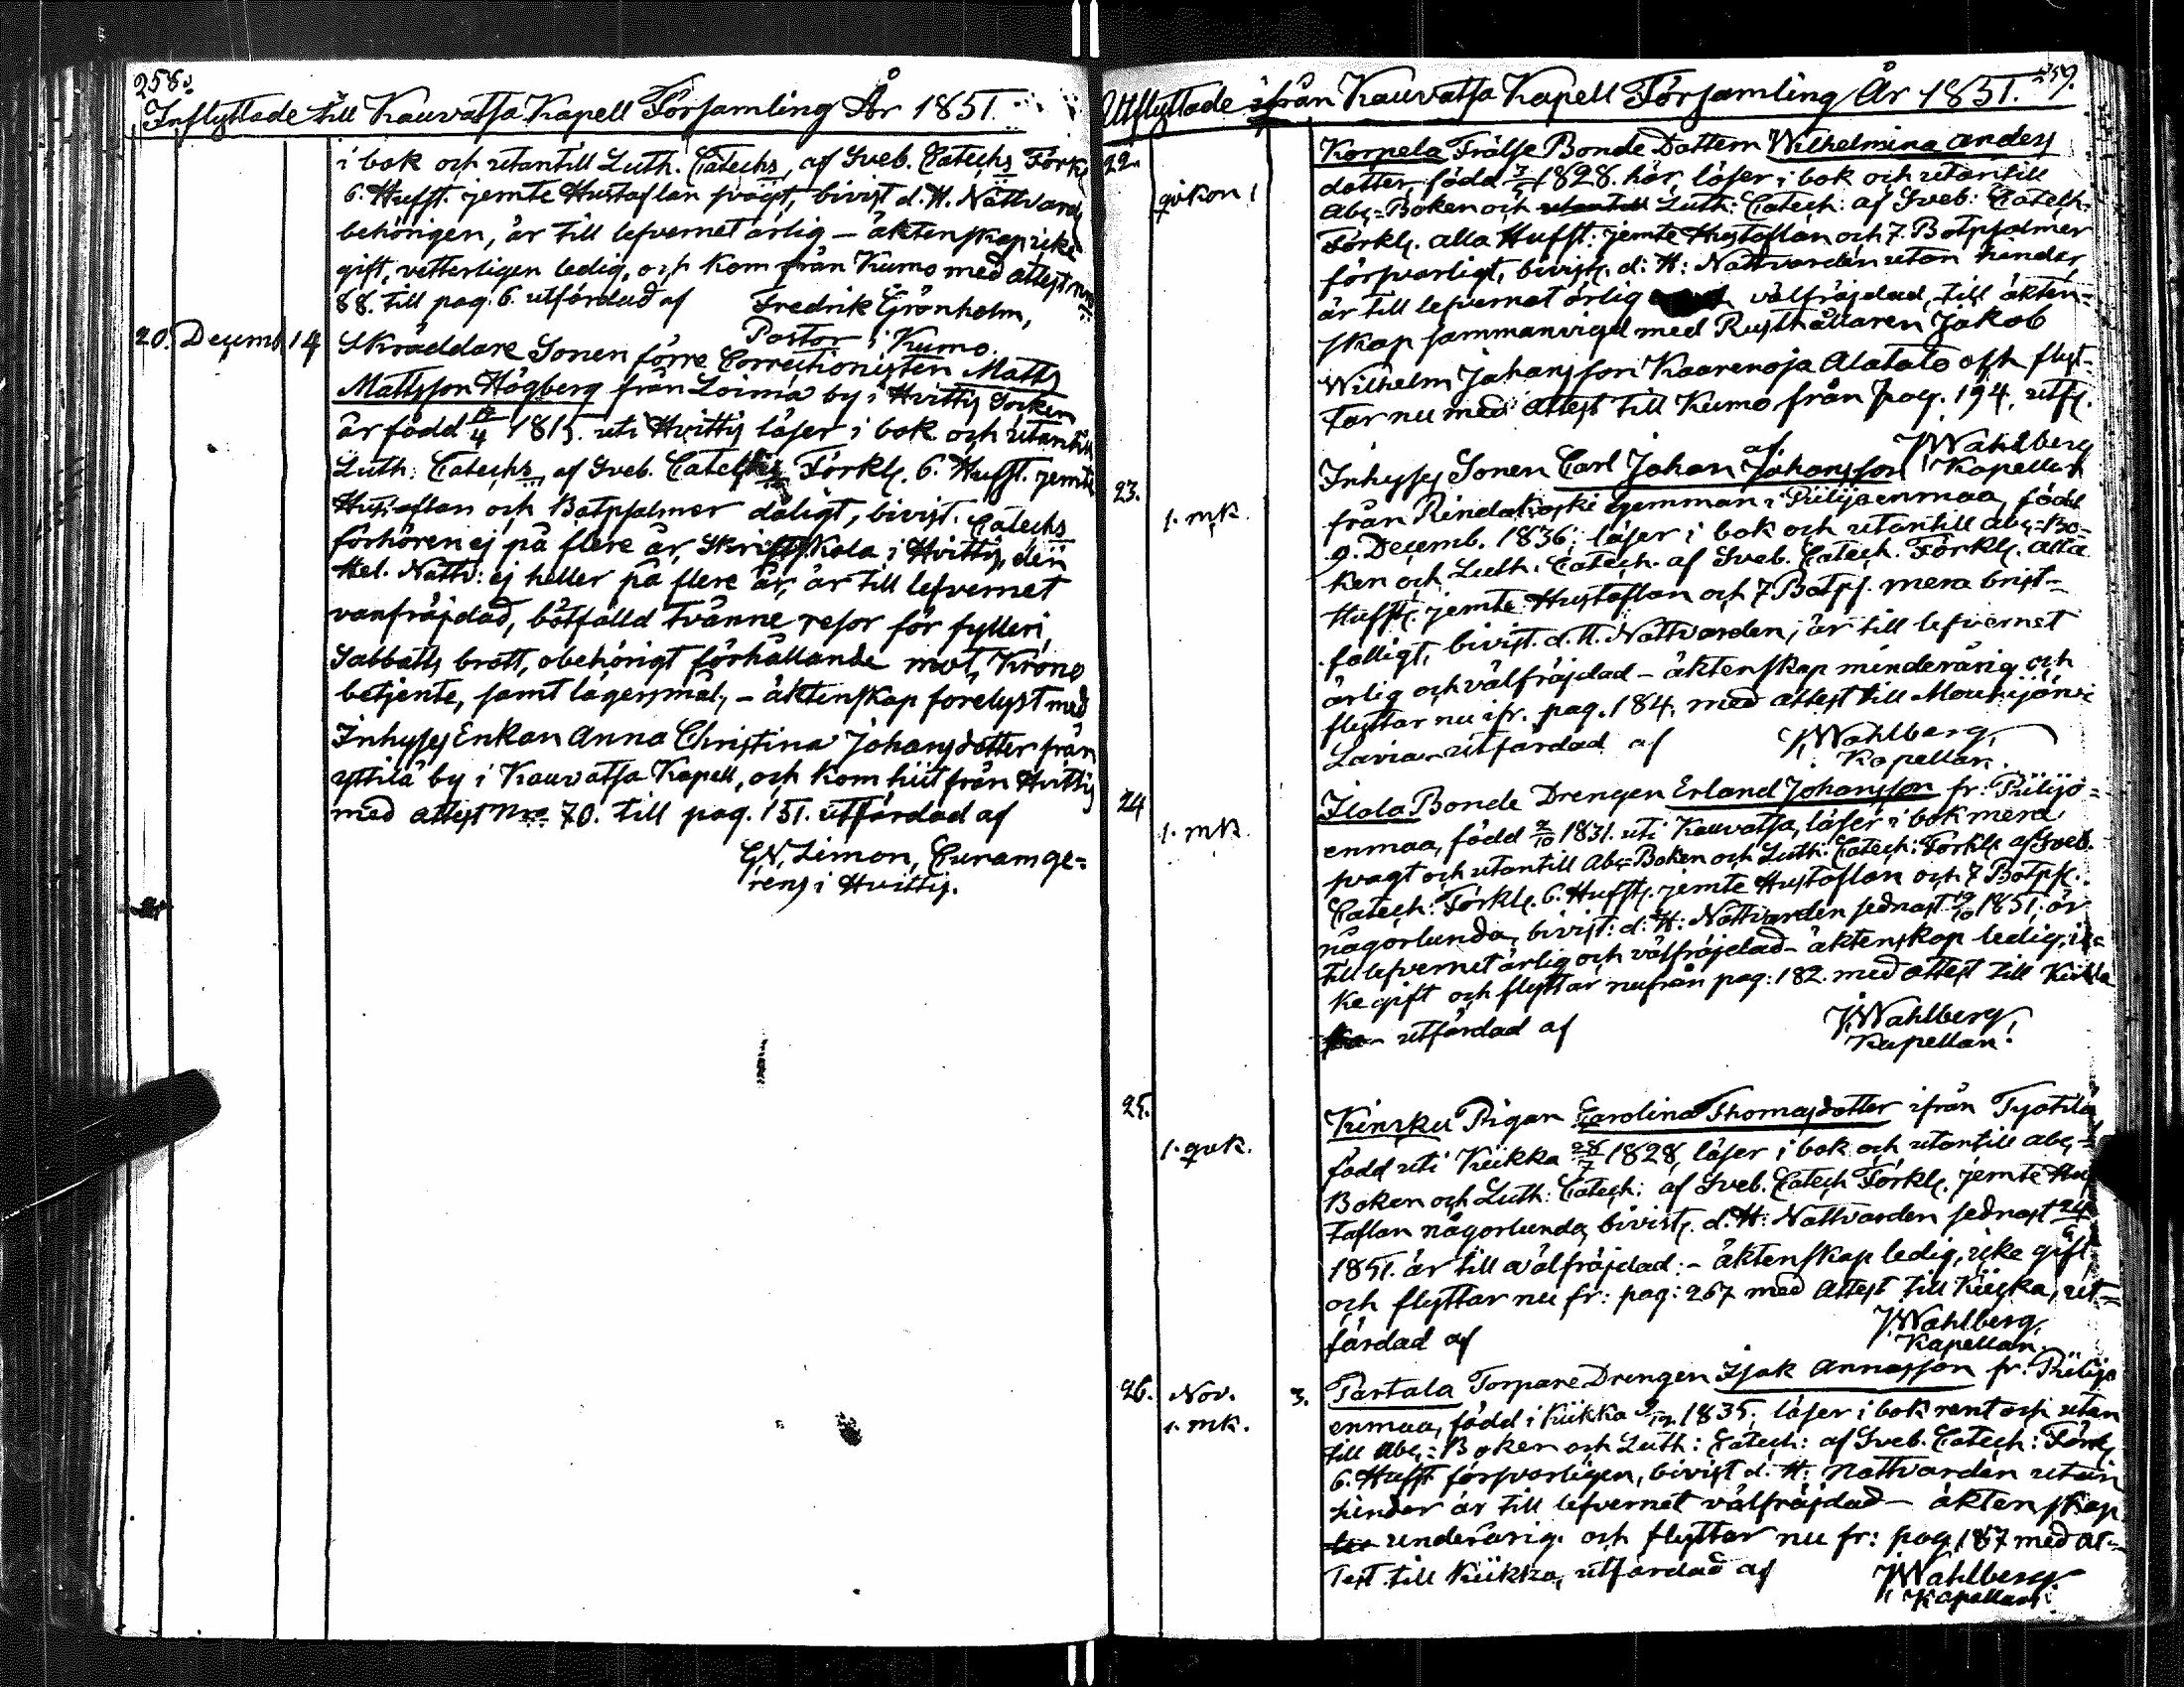 258.
Inflyttade till Kauvatsa Kapell Församling År 1851.
i bok och utantill Luth. Catechs, af Sveb. Catechs Förkl
6. Hufst. jemte Hustaflan svagt, bivist d. H. Nattvard
behörigen, är till lefvernet ärlig — äktenskap icke
gift, vetterligen ledig, och kom från Kumo med attest nro
88. till pag. 6. utfärdad af Fredrik Grönholm,
Pastor i Kumo.
20. Decemb. 14 Skräddare Sonen förre Correctionisten Matts
Mattsson Högberg från Loima by i Hvittis Socken
är född 12/4 1815. uti Hvittis läser i bok och utantill
Luth: Catechs af Sveb. Catechs Förkl. 6. Hufst. jemte
Hustaflan och Botpsalmer dåligt, bivist. Catechs
förhören ej på flere år, Skriftskola i Hvittis, den
Hel. Nattv: ej heller på flere år, är till lefvernet
vanfräjdad, bötfälld tvänne resor för fylleri,
Sabbaths brott, obehörigt förhållande mot Krono
betjente, samt lägersmål, — äktenskap forelyst med
Inhyses Enkan Anna Christina Johansdotter från
yttilä by i Kauvatsa Kapell, och kom hit från Hvittis
med attest Nro 70. till pag. 151. utfärdad af
GN, Limon, Curam ge=
rens i Hvittis.
259.
Utflyttade ifrån Kauvatsa Kapell Församling År 1851.
22. qvkon 1 Korpela Frälse Bonde Dottern Wilhelmina Anders
dotter, född 1828. här, läser i bok och utantill
Abc=Boken och Luth: Catech: af Sveb: Catech:
Förkl. alla Hufst: jemte Hustaflan och 7. Botpsalmer
försvarligt, bivist. d: H: Nattvarden utan hinder,
är till lefvernet ärlig välfräjdad, till äkten=
skap sammanvigd med Rusthållaren Jakob
Wilhelm Johansson Kaarenoja Alatalo och flyt=
tar nu med Attest till Kumo från pag. 194. utf.
af JWahlberg
Kapellan
23. 1. mk. Inhyses Sonen Carl Johan Johansson
från gemman i Piilijoenmaa, född
9. Decemb. 1836; läser i bok och utantill abc=Bo=
ken och Luth. Catech. af Sveb. Catech. Förkl. alla
Hufst. jemte Hustaflan och 7 Botps. mera brist=
fälligt, bivist. d. H. Nattvarden, är till lefvernet
ärlig och välfräjdad — äktenskap minderårig och
flyttar nu ifr. pag. 184. med attest till Mouhijärvi
Lavia utfärdad af JWahlberg,
Kapellan.
24 1. mk. Ilola Bonde Drengen Erland Johansson fr: Piilijo=
enmaa, född 2/10 1831. uti Kauvatsa, läser i bok mera
svagt och utantill Abc=Boken och Luth: Catech: Förkl. af Sveb.
Catech: Förkl. 6. Hufst. jemte Hustaflan och 7 Botps.
någorlunda, bivist: d: H: Nattvarden sednast 19/10 1851. är
till lefvernet ärlig och välfräjdad — äktenskap ledig, ic=
ke gift och flyttar nu från pag: 182. med attest till
utfärdad af JWahlberg,
Kapellan.
25. 1. qvk. Kinsku Pigan Carolina Thomasdotter ifrån Tyotila
född uti Kiikka 28/7 1828, läser i bok och utantill abc=
Boken och Luth: Catech: af Sveb. Catech Förkl. jemte Hus
taflan någorlunda, bivist. d. H: Nattvarden sednast
1851. är till välfräjdad: — äktenskap ledig, icke gift
och flyttar nu fr: pag: 267 med Attest till Kiikka, ut=
färdad af JWahlberg,
Kapellan.
26. Nov. 3. Partala Torpare Drengen Isak Annasson fr. Piilijo
1. mk. enmaa, född i Kiikka 1835, läser i bok rent och utan
till Abc=Boken och Luth: Catech: af Sveb. Catech: Förkl
6. Hufst försvarligen, bivist d. H: Nattvarden utan
hinder är till lefvernet välfräjdad — äktenskap
underårig och flyttar nu fr: pag 187 med at=
test till Kiikka, utfärdad af JWahlberg
Kapellan.